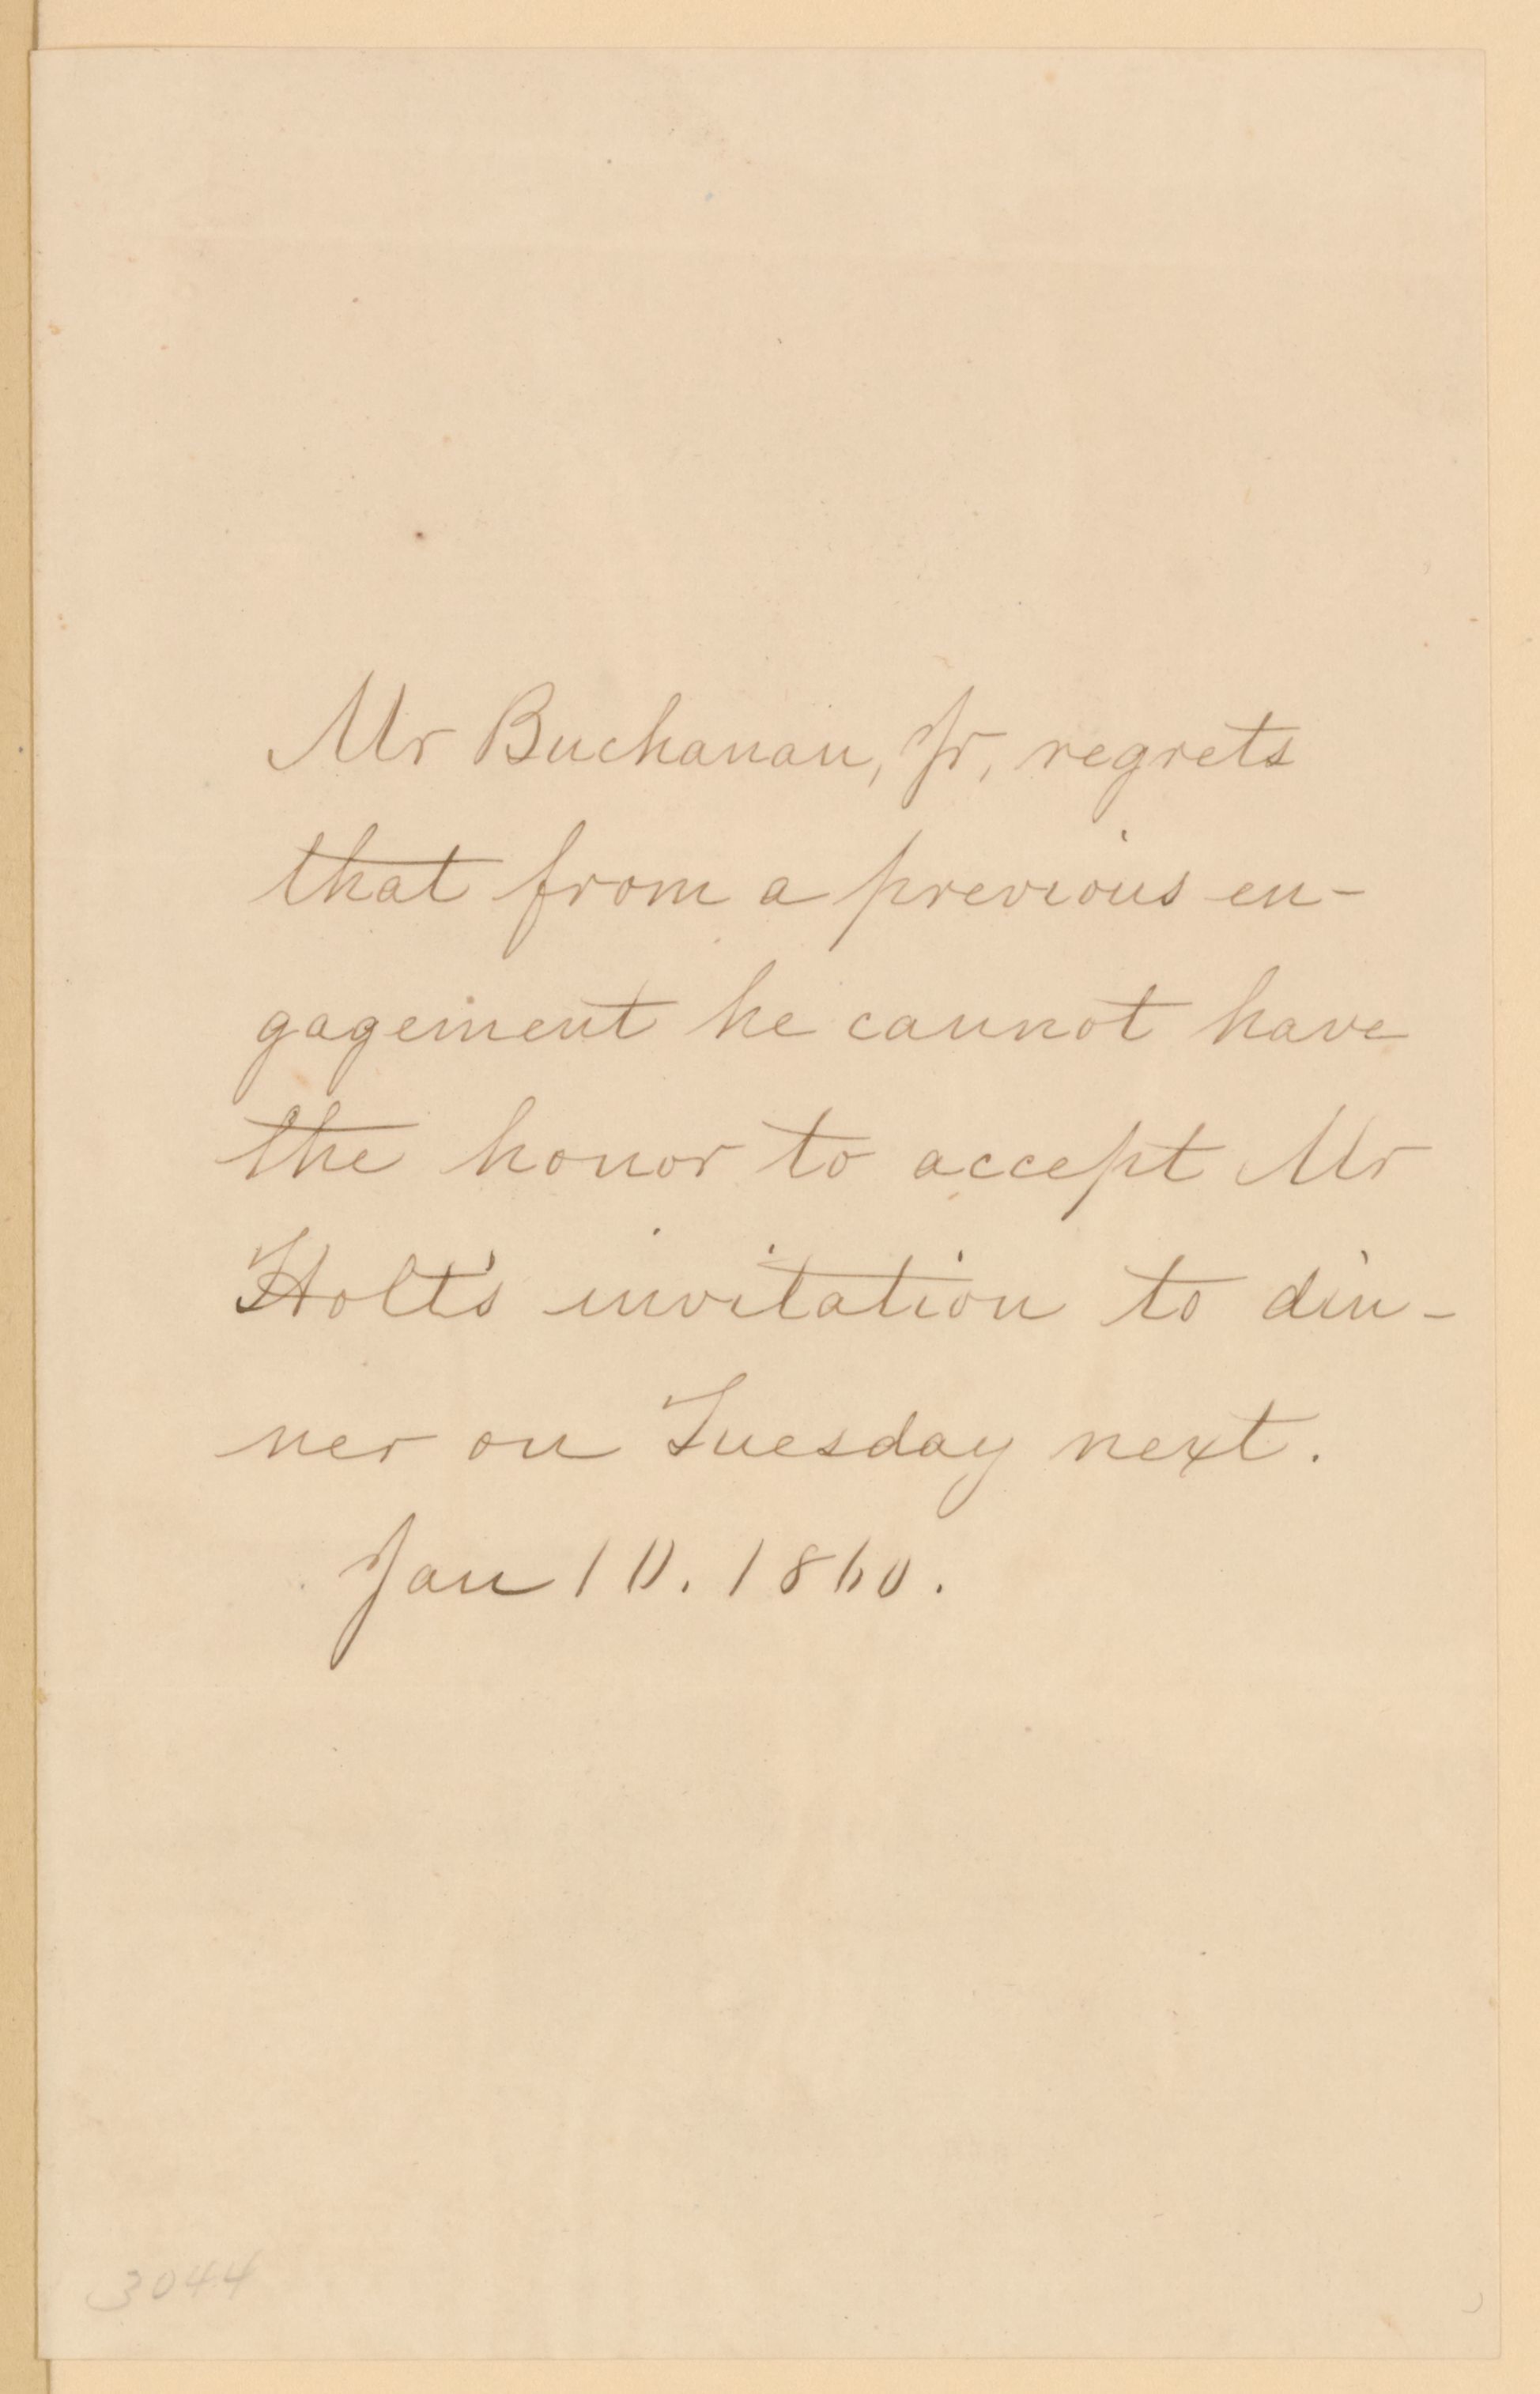 Mr Buchanan, Jr, regrets
that from a previous en-
gagement he cannot have
the honor to accept Mr
Holt's invitation to din-
ner on Tuesday next.
Jan 10. 1860.
3044